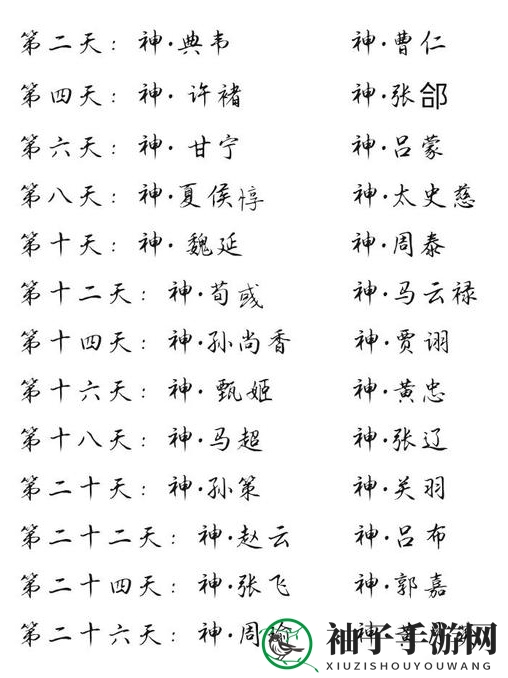 第二天：神·典韦 神·曹仁
第四天：神·许褚 神·张郃
第六天：神·甘宁 神·吕蒙
第八天：神·夏侯惇 神·太史慈
第十天：神·魏延 神·周泰
第十二天：神·荀彧 神·马云禄
第十四天：神·孙尚香 神·贾诩
第十六天：神·甄姬 神·黄忠
第十八天：神·马超 神·张辽
第二十天：神·孙策 神·关羽
第二十二天：神·赵云 神·吕布
第二十四天：神·张飞 神·郭嘉
第二十六天：神·周瑜 神·黄
袖子手游网
XIUZISHOUYOUWANG